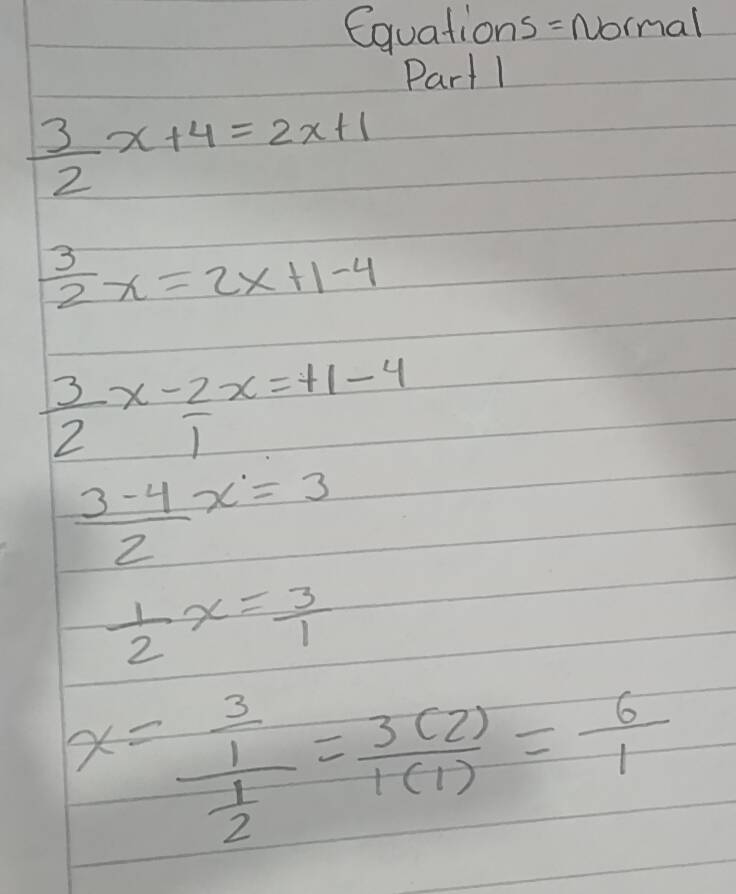 Equations = Normal
Part 1
3/2 x + 4 = 2x + 1
3/2 x = 2x + 1 - 4
3/2 x - 2/1 x = +1 - 4
3 - 4/2 x = 3
1/2 x = 3/1
x = 3/1 / 1/2 = 3(2)/1(1) = 6/1